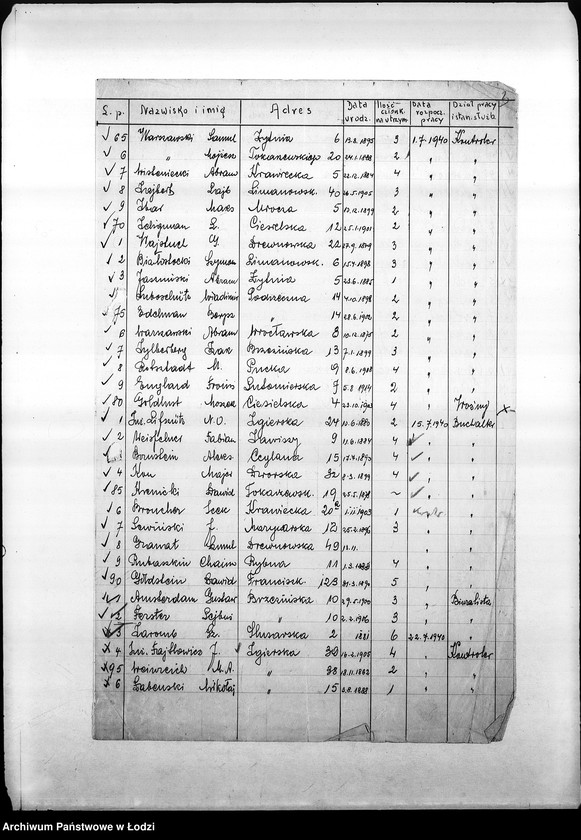 L.p. Nazwisko i imię Adres Data urodz. Ilość członk. na utrzym. Data rozpocz. pracy Dział pracy i stan. służb.
65 Warszawski Samul Żytnia 6 13.8.1895 3 1.7.1940 Kontroler
6 " Tokarzewskiego 20 24.1.1888 2 " "
7 Wisteniecki Abram Krawiecka 5 22.12.1884 4 " "
8 Szajbert Lajb Limanowsk. 40 5.1905 3 " "
9 Maks Mrocza 5 12.1899 2 " "
70 Seligman S. Ciesielska 12 25.1.1901 2 " "
1 G. Drewnowska 22 9.1879 3 " "
2 Białostocki Szymon Limanowsk. 6 15.4.1898 3 " "
3 Jasziński Abram Żytnia 5 23.6.1885 1 " "
Luboschütz Wladimir Podrzeczna 14 4.10.1898 2 " "
75 Edelman " 14 28.6.1902 2 " "
6 Warszawski Abram Wrocławska 8 10.12.1875 2 " "
7 Sylberberg Izak Brzezińska 13 7.1.1899 3 " "
8 Rotsztadt M. Pucka 9 8.6.1908 4 " "
9 England Froim Lutomierska 7 5.8.1914 2 " "
80 Goldlust Moszek Ciesielska 4 4 " Woźny
1 Inż. Lifszütz N.O. Zgierska 24 10.6.1880 2 15.7.1940 Buchalter
2 Weisfelner Fabian Zawiszy 9 11.6.1884 4 " "
Bornstein Aleks Ceglana 15 17.4.1890 4 " "
4 Kon Major Dworska 32 8.3.1899 4 " "
85 Kronicki Dawid Tokarzewsk. 19 25.5.1898 ~ " "
6 Broncher Icek Krawiecka 20a 1.III.1903 1 "
7 Lewiński J. Marysińska 12 25.2.1896 3 " "
8 Granat Samul Drewnowska 49 " "
9 Rubaszkin Chaim Rybna 11 4 " "
90 Goldstein Dawid Francisk. 123 31.3.1890 5 " "
1 Amsterdam Gustaw Brzezińska 10 29.5.1900 3 " Biuralista
2 Ferster Lajbuś " 10 2.2.1906 3 " "
3 Sz. Ślusarska 2 1881 6 22.7.1940 "
4 Inż. Fajtlowicz J. Zgierska 30 16.2.1905 4 " Kontroler
95 Weinreich M.A. " 38 18.11.1882 2 " "
6 Mikołaj " 15 3.8.1888 1 " "
Archiwum Państwowe w Łodzi